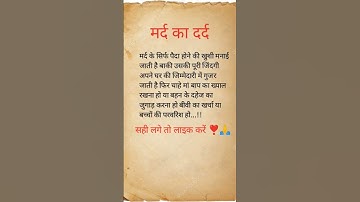 मर्द का दर्द
मर्द के सिर्फ पैदा होने की खुशी मनाई
जाती है बाकी उसकी पूरी जिंदगी
अपने घर की जिम्मेदारी में गुजर
जाती है फिर चाहे मां बाप का ख्याल
रखना हो या बहन के दहेज का
जुगाड़ करना हो बीवी का खर्चा या
बच्चों की परवरिश हो...!!
सही लगे तो लाइक करें ❣️🙏